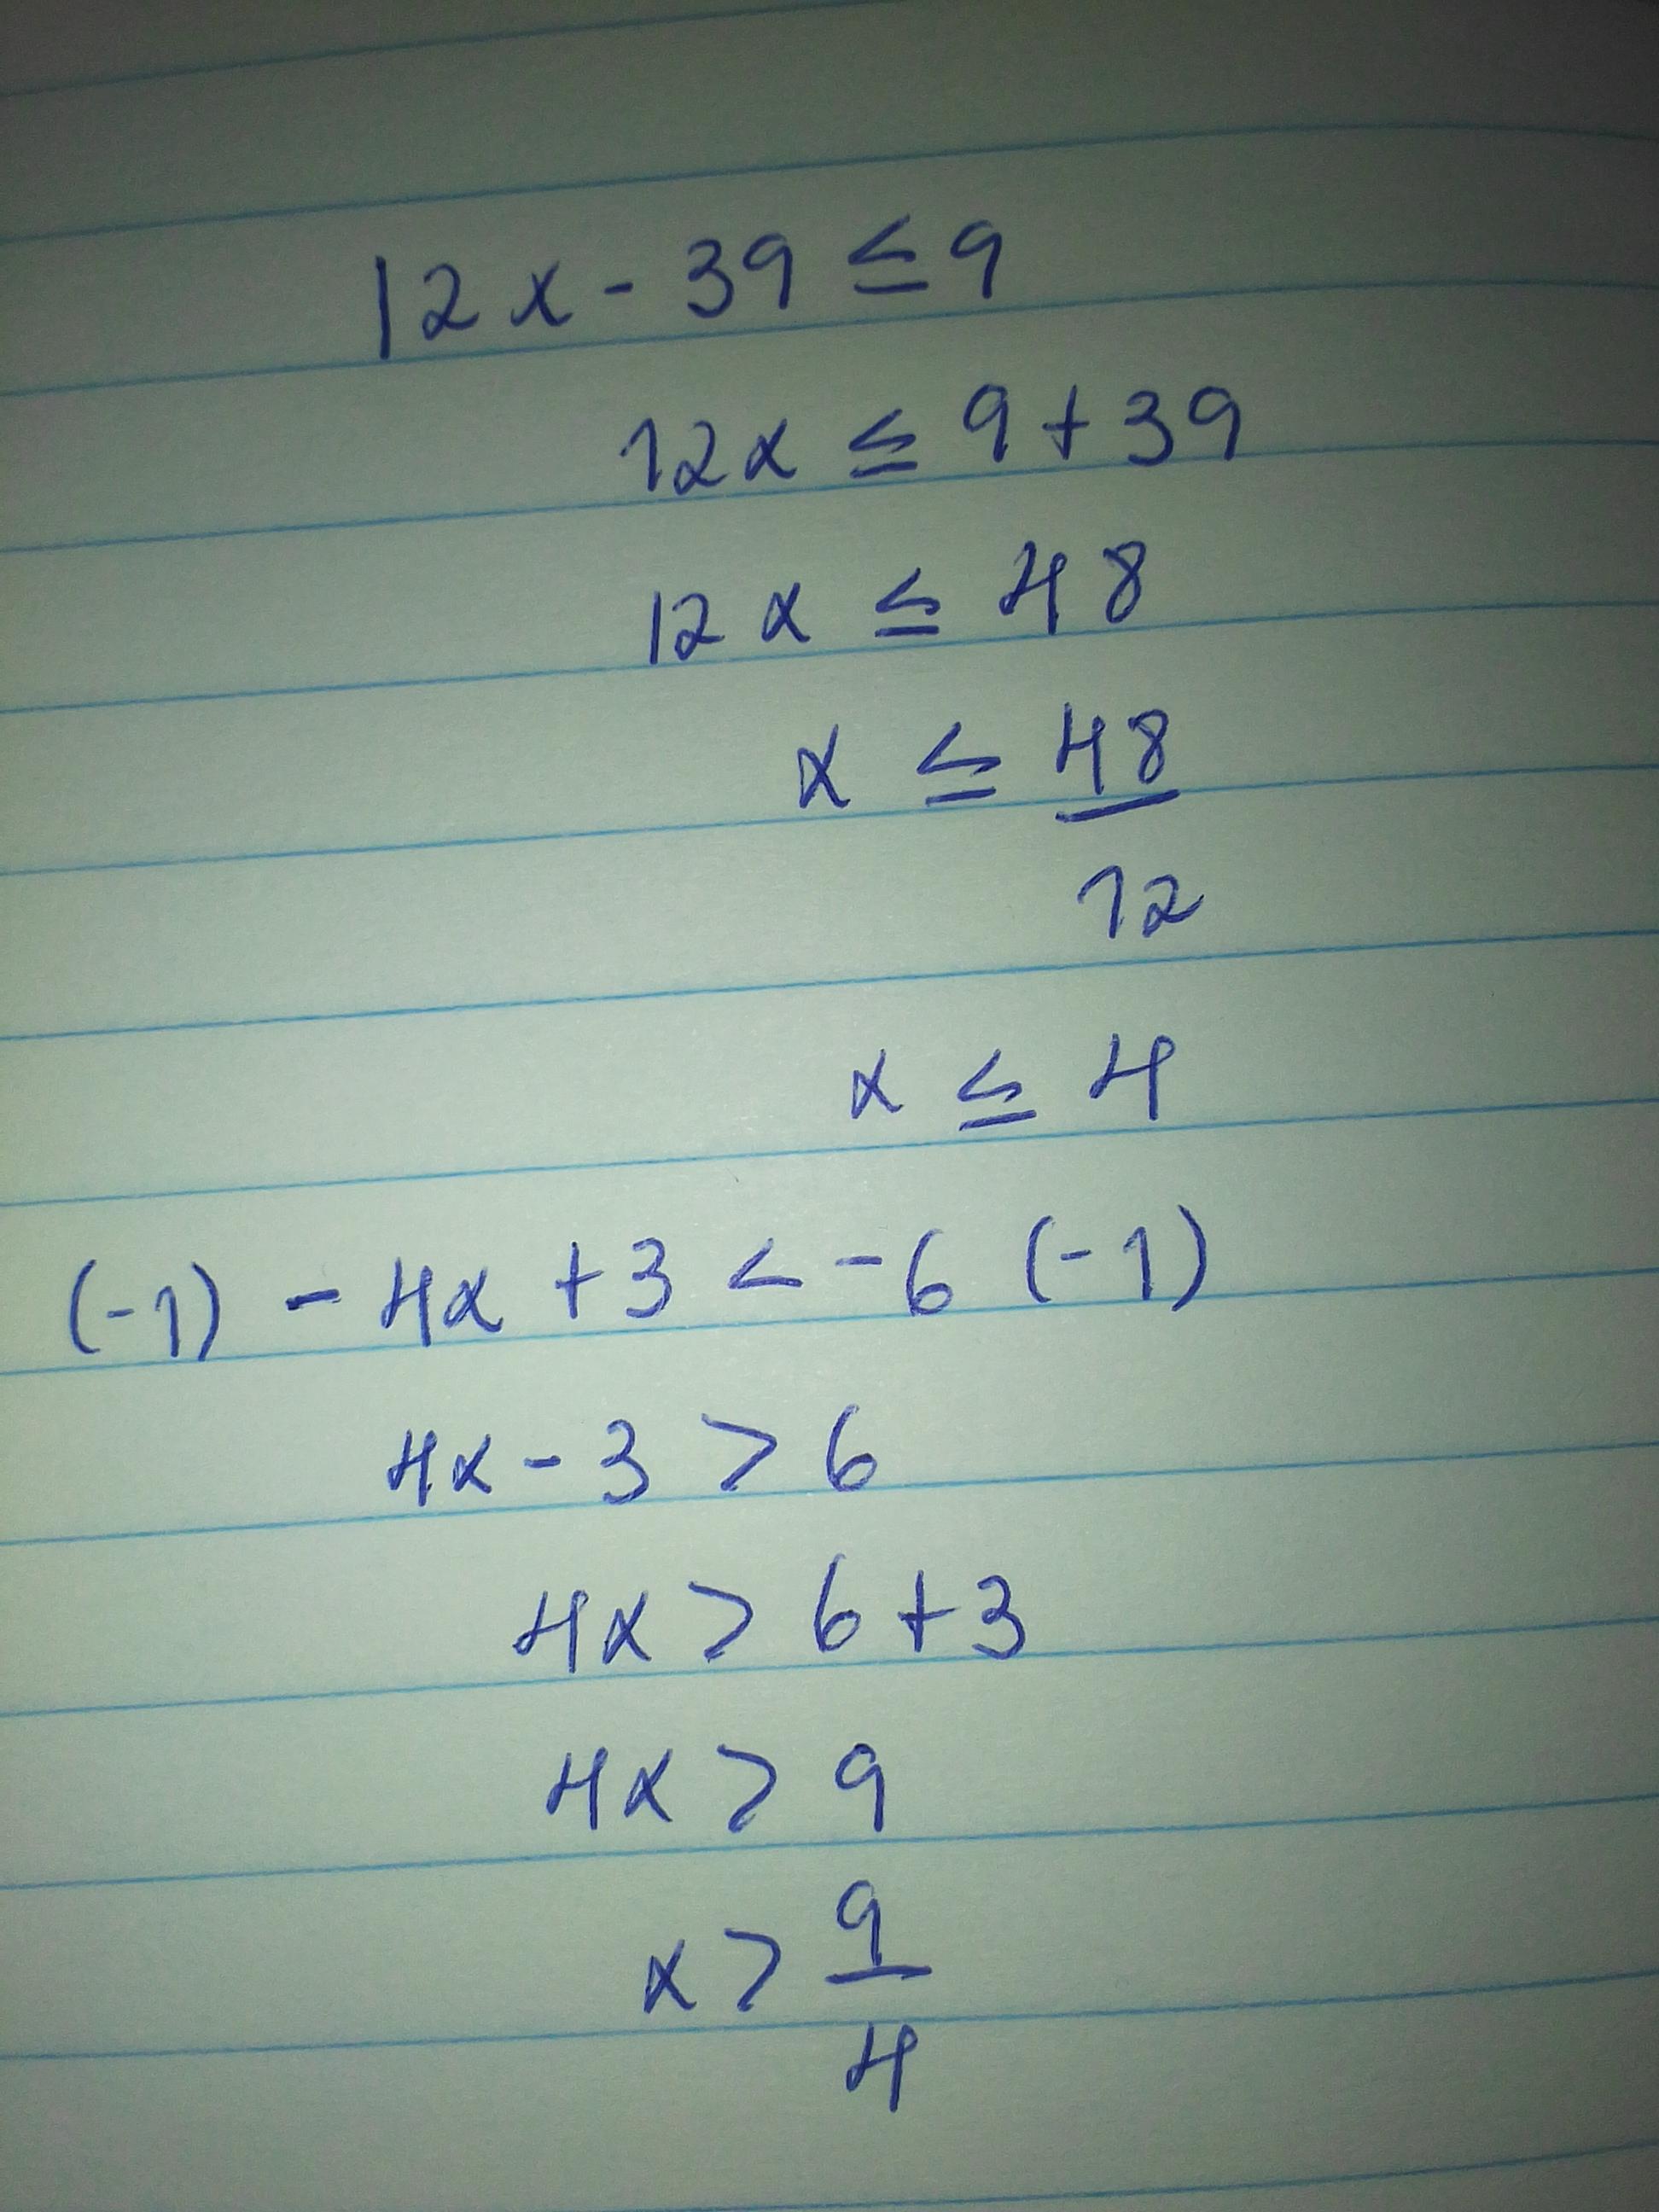 12x - 39 ≤ 9
12x ≤ 9 + 39
12x ≤ 48
x ≤ 48
12
x ≤ 4
(-1) - 4x + 3 < -6 (-1)
4x - 3 > 6
4x > 6 + 3
4x > 9
x > 9
4